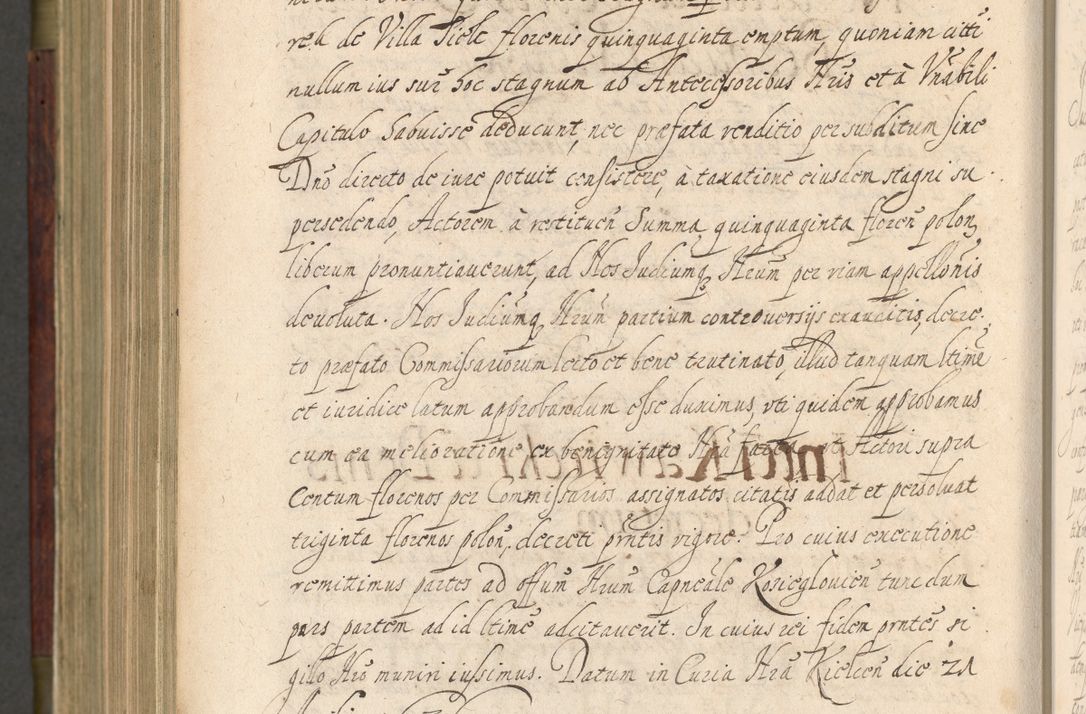 rek de Villa Siele florenis quinquaginta emptum, quoniam citti
nullum ius sup̃ hoc stagnum ab Antecessoribus Nr̃is et à Vn̄abili
Capitulo habuisse deducunt, nec præfata venditio per subditum sine
Dn̄o directo de iure potuit consistere, à taxatione eiusdem stagni su-
persedendo, Actorem à restitueñ Summa quinquaginta floreñ polon,
liberum pronuntiauerunt, ad Nos Iudiumq̨ Nr̃um per viam appellōnis
deuoluta. Nos Iudiumq̨ Nr̃um partium controuersijs exauditis, decre-
to præfato Commissariorum lecto et bene trutinato, illud tanquam ltime
et iuridice latum approbandum esse duximus, vti quidem approbamus
cum ea melioratione ex benignitate Nr̃a facta, ut Actori supra
Centum florenos per Commissarios assignatos citatis addat et persoluat
triginta florenos poloñ. decreti pr̃ntis vigore. Pro cuius executione
remittimus partes ad offum Nr̃um Capneale Kosieglouieñ tunc dum
pars partem ad id ltime adcitauerit. In cuius rei fidem prntes si
gillo Nr̃o muniri iussimus. Datum in Curia Nr̃a Kielceñ die 21